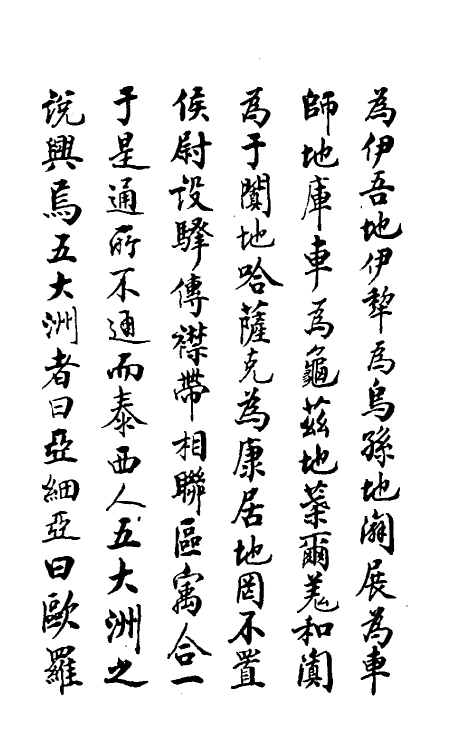 為伊吾地伊犂為烏孫地闢展為車
師地庫車為龜茲地葉爾羌和闐
為于闐地哈薩克為康居地罔不置
侯尉設驛傳襟帶相聯區寓合一
于是通所不通而泰西人五大洲之
說興焉五大洲者曰亞細亞曰歐羅